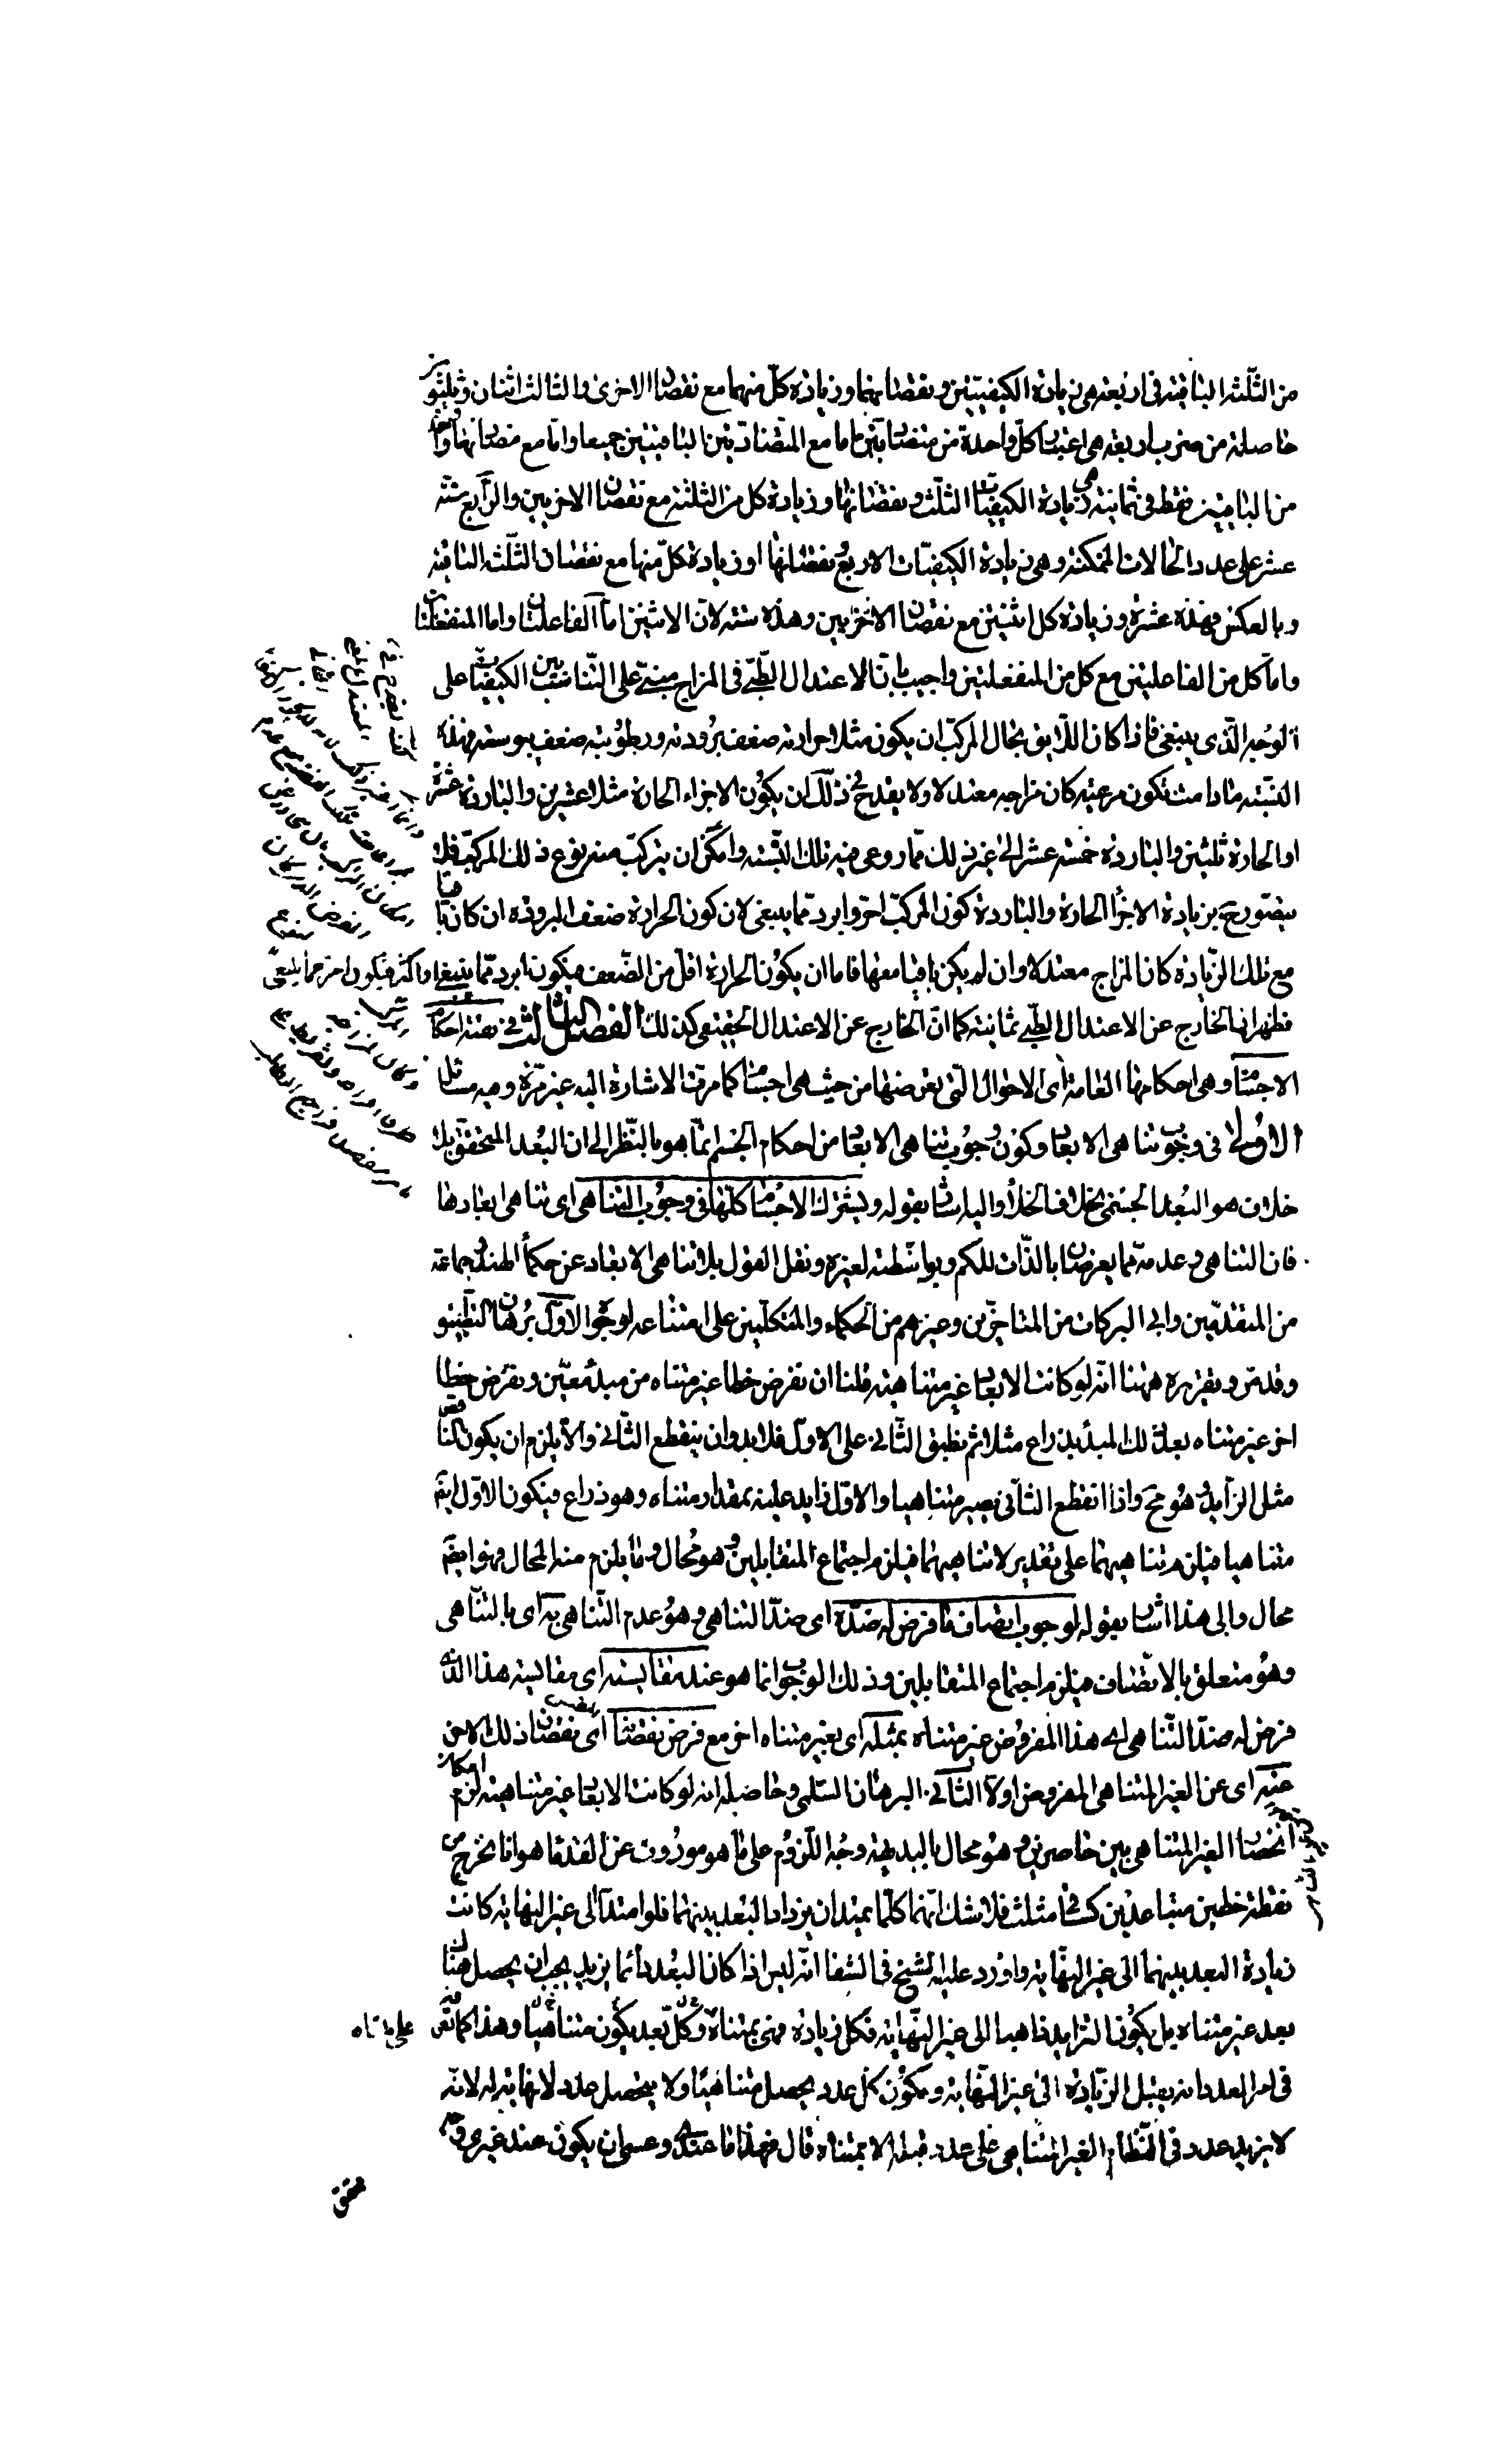 من الثلثة الباقية فى اربعة هى زيادة الكيفيتين ونقصانهما وزيادة كل منهما مع نقصان الاخرى والثالث اثنان وثلثون
حاصلة من ضرب اربعة هى اعتبار كل واحدة من متضادتين اما مع المتضادتين الباقيتين جميعا واما مع
من الباقيتين فقط فى ثمانية هى زيادة الكيفيات الثلث ونقصانها وزيادة كل من الثلثة مع نقصان الاخريين والرابع ستة
عشر على عدد الحالات الممكنة وهى زيادة الكيفيات الاربع ونقصانها او زيادة كل منها مع نقصان الثلثة الباقية
وبالعكس فهذه عشرة وزيادة كل اثنتين مع نقصان الاخريين وهذه ستة لان الاثنين اما الفاعلتان واما المنفعلتان
واما كل من الفاعلتين مع كل من المنفعلتين واجيب بان الاعتدال الطبى فى المزاج مبنى على التناسب بين الكيفيات على
الوجه الذى ينبغى فاذا كان اللايق بحال المركب ان يكون مثلا حرارته ضعف برودته ورطوبته ضعف يبوسته فهذه
النسبة ما دامت تكون مرعية كان مزاجه معتدلا ولا يقدح فى ذلك ان يكون الاجزاء الحارة مثلا عشرين والباردة عشرة
او الحارة ثلثين والباردة خمسة عشر الى غير ذلك مما روعى فيه تلك النسبة وامكن ان يتركب منه نوع ذلك المركب فلا
يتصور ح بزيادة الاجزاء الحارة والباردة كون المركب احر وابرد مما ينبغى لان كون الحرارة ضعف البرودة ان كان باقيا
مع تلك الزيادة كان المزاج معتدلا وان لم يكن باقيا معها فاما ان يكون الحرارة اقل من الضعف فيكون ابرد مما ينبغى او اكثر فيكون احر مما ينبغى
فظهر ان الخارج عن الاعتدال الطبى ثمانية كما ان الخارج عن الاعتدال الحقيقى كذلك الفصل الثالث فى بقية احكام
الاجسام وهى احكامها العامة اى الاحوال التى تعرضها من حيث هى اجسام كما مرت الاشارة اليه غير مرة وفيه مسائل
الاولى فى وجوب تناهى الابعاد وكون وجوب تناهى الابعاد من احكام الجسم انما هو بالنظر الى ان البعد المتحقق بلا
خلاف هو البعد الجسمى بخلاف الخلأ واليه اشار بقوله ويشترك الاجسام كلها فى وجوب التناهى اى تناهى ابعادها
فان التناهى وعدمه مما يعرضان بالذات للكم وبواسطته لغيره ونقل القول بلاتناهى الابعاد عن حكماء الهند وجماعة
من المتقدمين وابى البركات من المتاخرين وغيرهم من الحكماء والمتكلمين على امتناعه لوجوه الاول برهان التطبيق
وقد مر وتقريره ههنا انه لو كانت الابعاد غير متناهية فلنا ان نفرض خطا غير متناه من مبدأ معين ونفرض خطا
اخر غير متناه بعد ذلك المبدأ بذراع مثلا ثم نطبق الثانى على الاول فلابد وان ينقطع الثانى والا يلزم ان يكون الناقص
مثل الزايد وهو مح واذا انقطع الثانى يصير متناهيا والاول زايد عليه بمقدار متناه وهو ذراع فيكون الاول ايضا
متناهيا فيلزم تناهيهما على تقدير لاتناهيهما فيلزم اجتماع المتقابلين وهو محال وما يلزم منه المحال فهو ايضا
محال والى هذا اشار بقوله لوجوب اتصاف ما فرض له ضده اى ضد التناهى وهو عدم التناهى به اى بالتناهى
وهو متعلق بالاتصاف فيلزم اجتماع المتقابلين وذلك الوجوب انما هو عند مقايسته اى مقايسة هذا الذى
فرض له ضد التناهى اى هذا المفروض غير متناه بمثله اى بغير متناه اخر مع فرض نقصانه اى نقصان ذلك الاخر
عنه اى عن الغير المتناهى المفروض اولا الثانى البرهان السلمى وحاصله انه لو كانت الابعاد غير متناهية لزم امكان
انحصار الغير المتناهى بين حاصرين وهو محال بالبديهة وجه اللزوم على ما هو موروث عن القدماء هو انا نخرج من
نقطة خطين متباعدين كساقى مثلث فلا شك انهما كلما يمتدان يزداد البعد بينهما فلو امتدا الى غير النهاية كانت
زيادة البعد بينهما الى غير النهاية واورد عليه الشيخ فى الشفا انه ليس اذا كان البعد دائما يزيد يجب ان يحصل هناك
بعد غير متناه بل يكون التزايد ذاهبا الى غير النهاية فكل زيادة فهى بمتناه وكل بعد يكون متناهيا وهذا كما
فى امر العدد انه يقبل الزيادة الى غير النهاية ويكون كل عدد يحصل متناهيا ولا يتحصل عدد لا نهاية له لانه
لا يزيد عدد فى النظام الغير المتناهى على عدد قبله الا بمتناه قال فهذا ما عندى وعسى ان يكون عند غيرى
على متناه